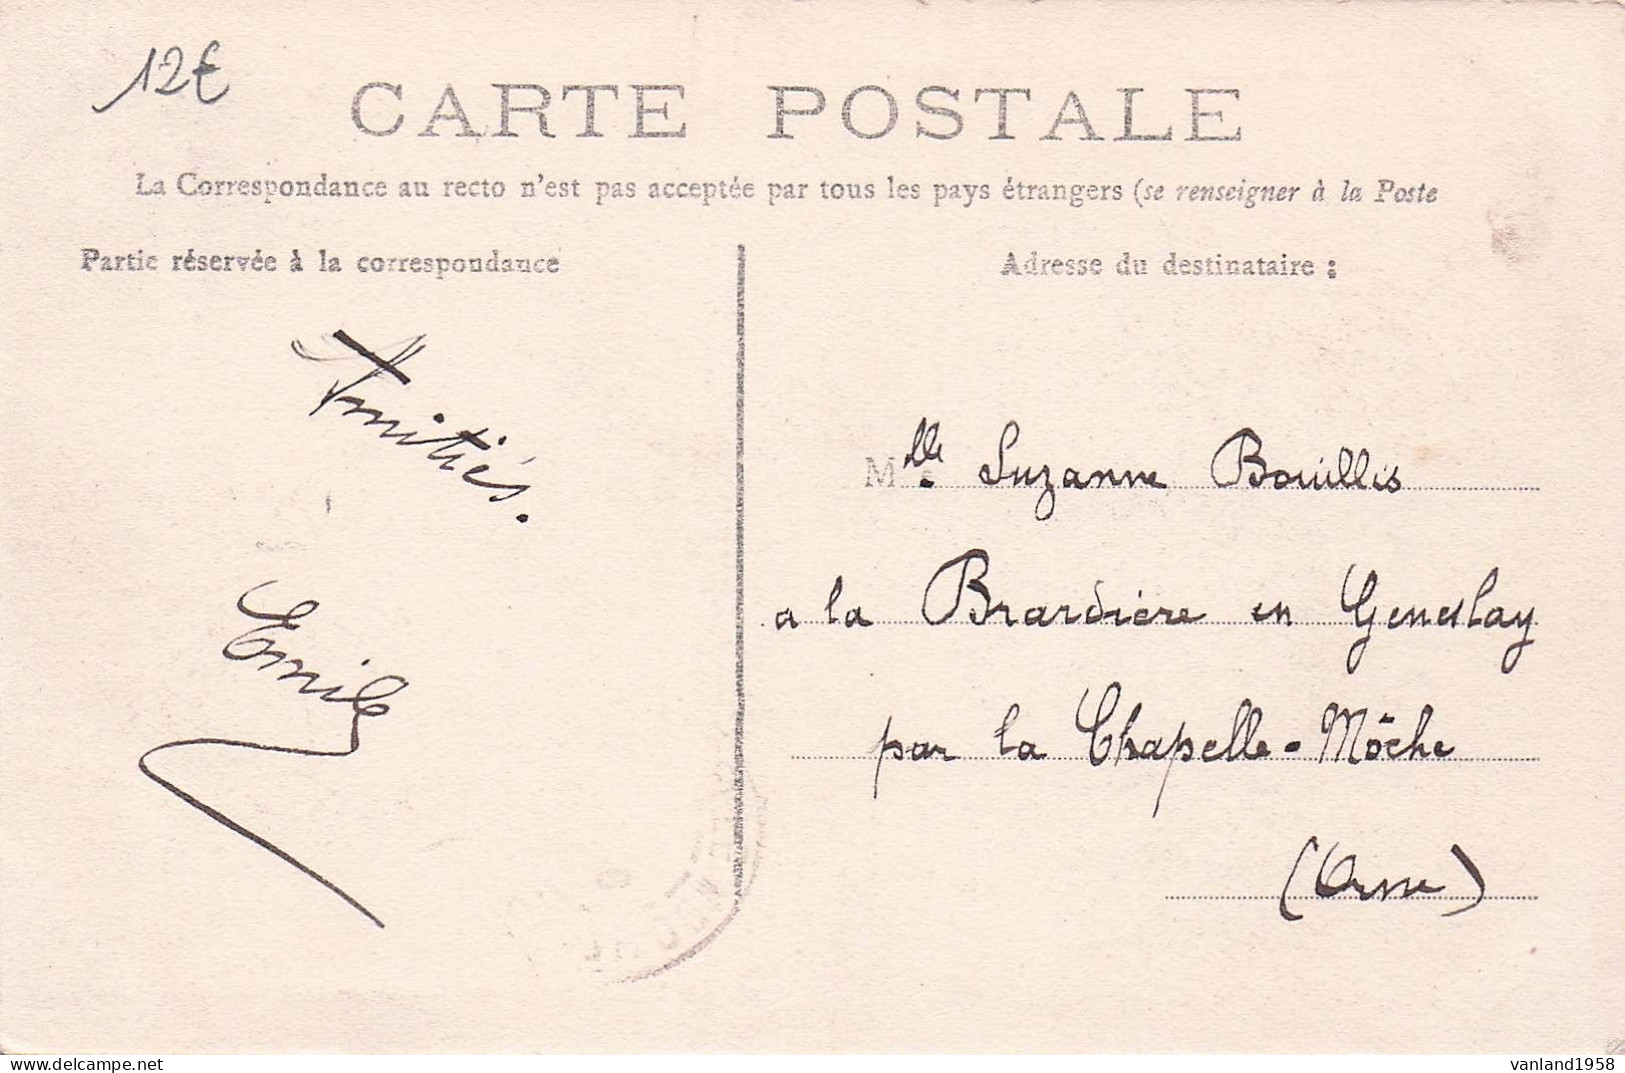 12€
CARTE POSTALE
La Correspondance au recto n'est pas acceptée par tous les pays étrangers (se renseigner à la Poste
Partie réservée à la correspondance
Amitiés.
Emile
Adresse du destinataire :
Mlle. Suzanne Bouillis
a la Brardière en Geneslay
par la Chapelle-Möche
(Orne)
vanland1958